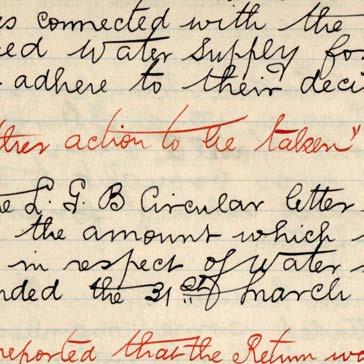 es connected with the
ed Water Supply fo
adhere to their deci
ther action to be taken"
e L. G. B Circular letter
the amount which
in respect of Water
nded the 31st March
reported that the Return wa